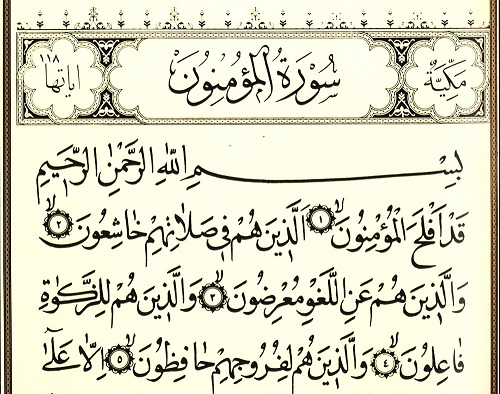 مَكِّيَّةٌ سُورَةُ الْمُؤْمِنُونَ اٰيَاتُهَا ١١٨
بِسْمِ اللّٰهِ الرَّحْمٰنِ الرَّحِيمِ
قَدْ اَفْلَحَ الْمُؤْمِنُونَ ﴿١﴾ اَلَّذِينَ هُمْ فِي صَلَاتِهِمْ خَاشِعُونَ ﴿٢﴾
وَالَّذِينَ هُمْ عَنِ اللَّغْوِ مُعْرِضُونَ ﴿٣﴾ وَالَّذِينَ هُمْ لِلزَّكٰوةِ
فَاعِلُونَ ﴿٤﴾ وَالَّذِينَ هُمْ لِفُرُوجِهِمْ حَافِظُونَ ﴿٥﴾ اِلَّا عَلٰٓى